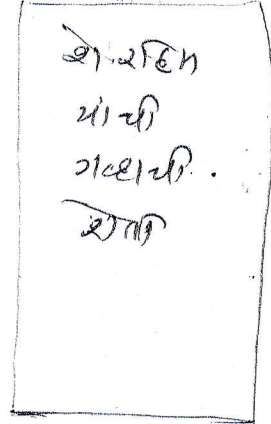 शे. रहिम
यांची
गव्हाची.
शेती